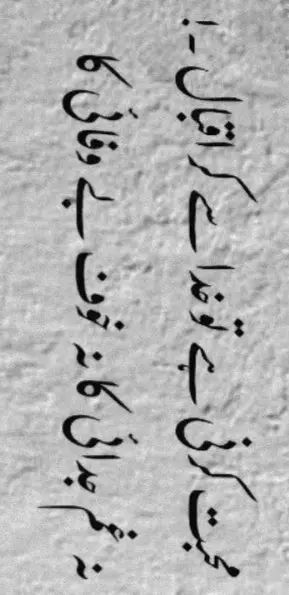 محبت کرنی ہے تو خدا سے کر اقبال -!
نہ غم جدائی کا نہ خوف بے وفائی کا